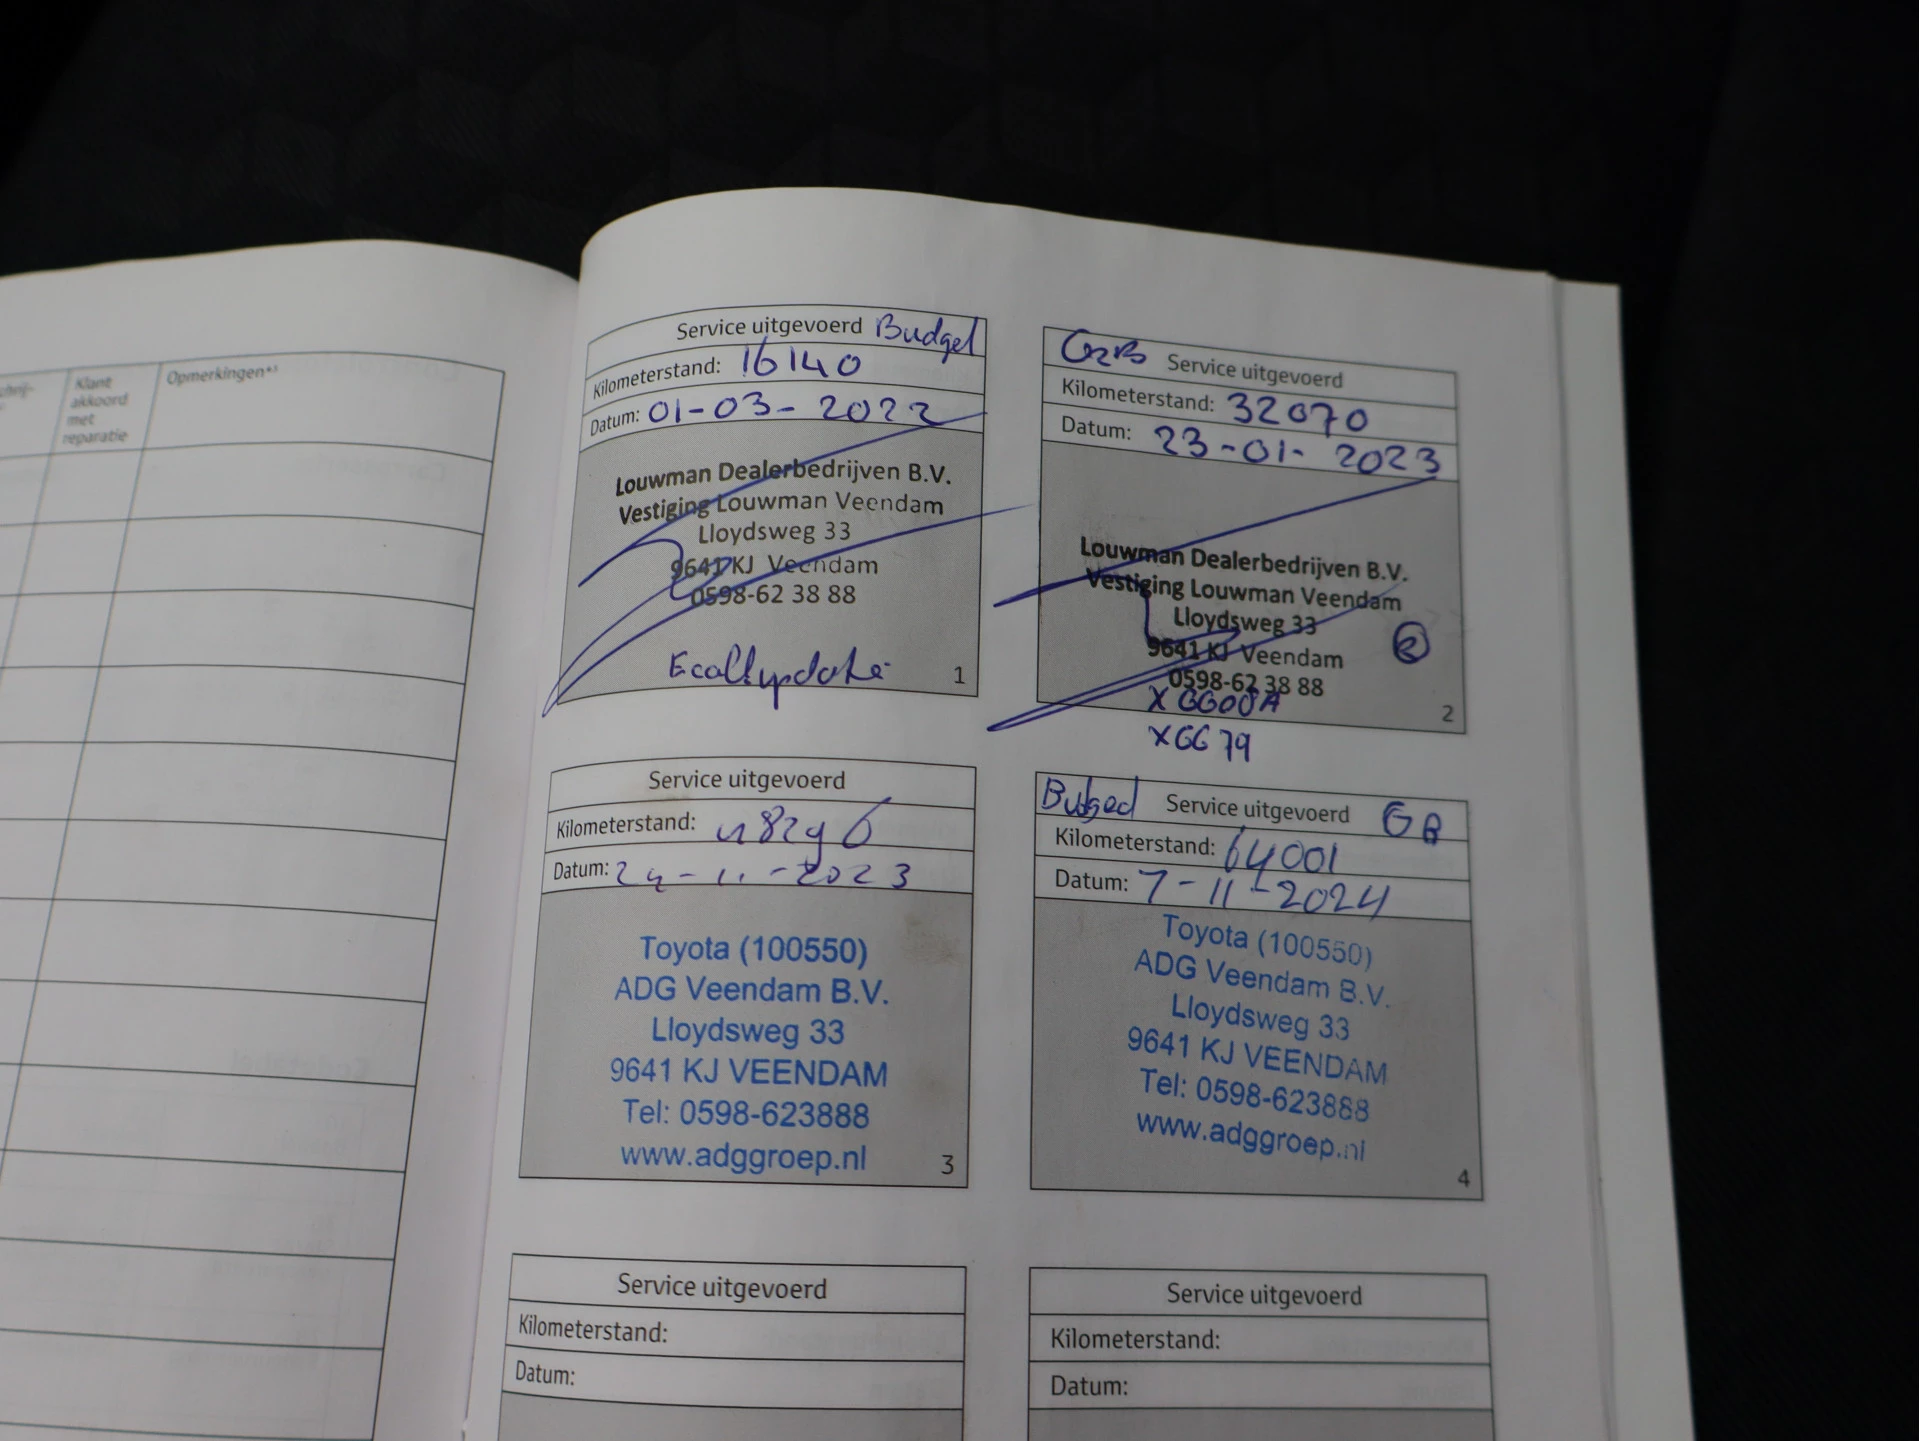 Klant
akkoord
met
reparatie
Opmerkingen
Service uitgevoerd Budget
Kilometerstand: 16140
Datum: 01-03-2022
Louwman Dealerbedrijven B.V.
Vestiging Louwman Veendam
Lloydsweg 33
9641 KJ Veendam
0598-62 38 88
Ecall update
1
Service uitgevoerd
Kilometerstand: 32070
Datum: 23-01-2023
Louwman Dealerbedrijven B.V.
Vestiging Louwman Veendam
Lloydsweg 33
9641 KJ Veendam
0598-62 38 88
XGG08A
2
XGG79
Service uitgevoerd
Kilometerstand: 48296
Datum: 24-11-2023
Toyota (100550)
ADG Veendam B.V.
Lloydsweg 33
9641 KJ VEENDAM
Tel: 0598-623888
www.adggroep.nl
3
Budged Service uitgevoerd GB
Kilometerstand: 64001
Datum: 7-11-2024
Toyota (100550)
ADG Veendam B.V.
Lloydsweg 33
9641 KJ VEENDAM
Tel: 0598-623888
www.adggroep.nl
4
Service uitgevoerd
Kilometerstand:
Datum:
Service uitgevoerd
Kilometerstand:
Datum: